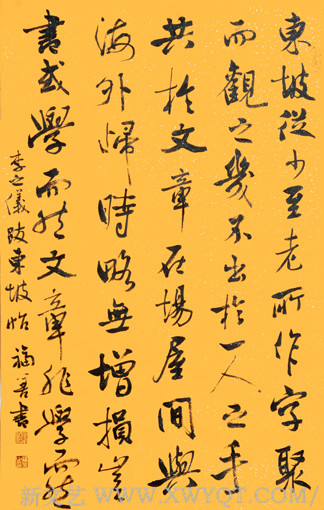 東坡從少至老所作字聚
而觀之幾不出於一人之手
其於文章在場屋間與
海外歸時略無增損豈
書或學而然文章非學而
李之儀跋東坡帖 福善書
WWW.XWYQT.COM